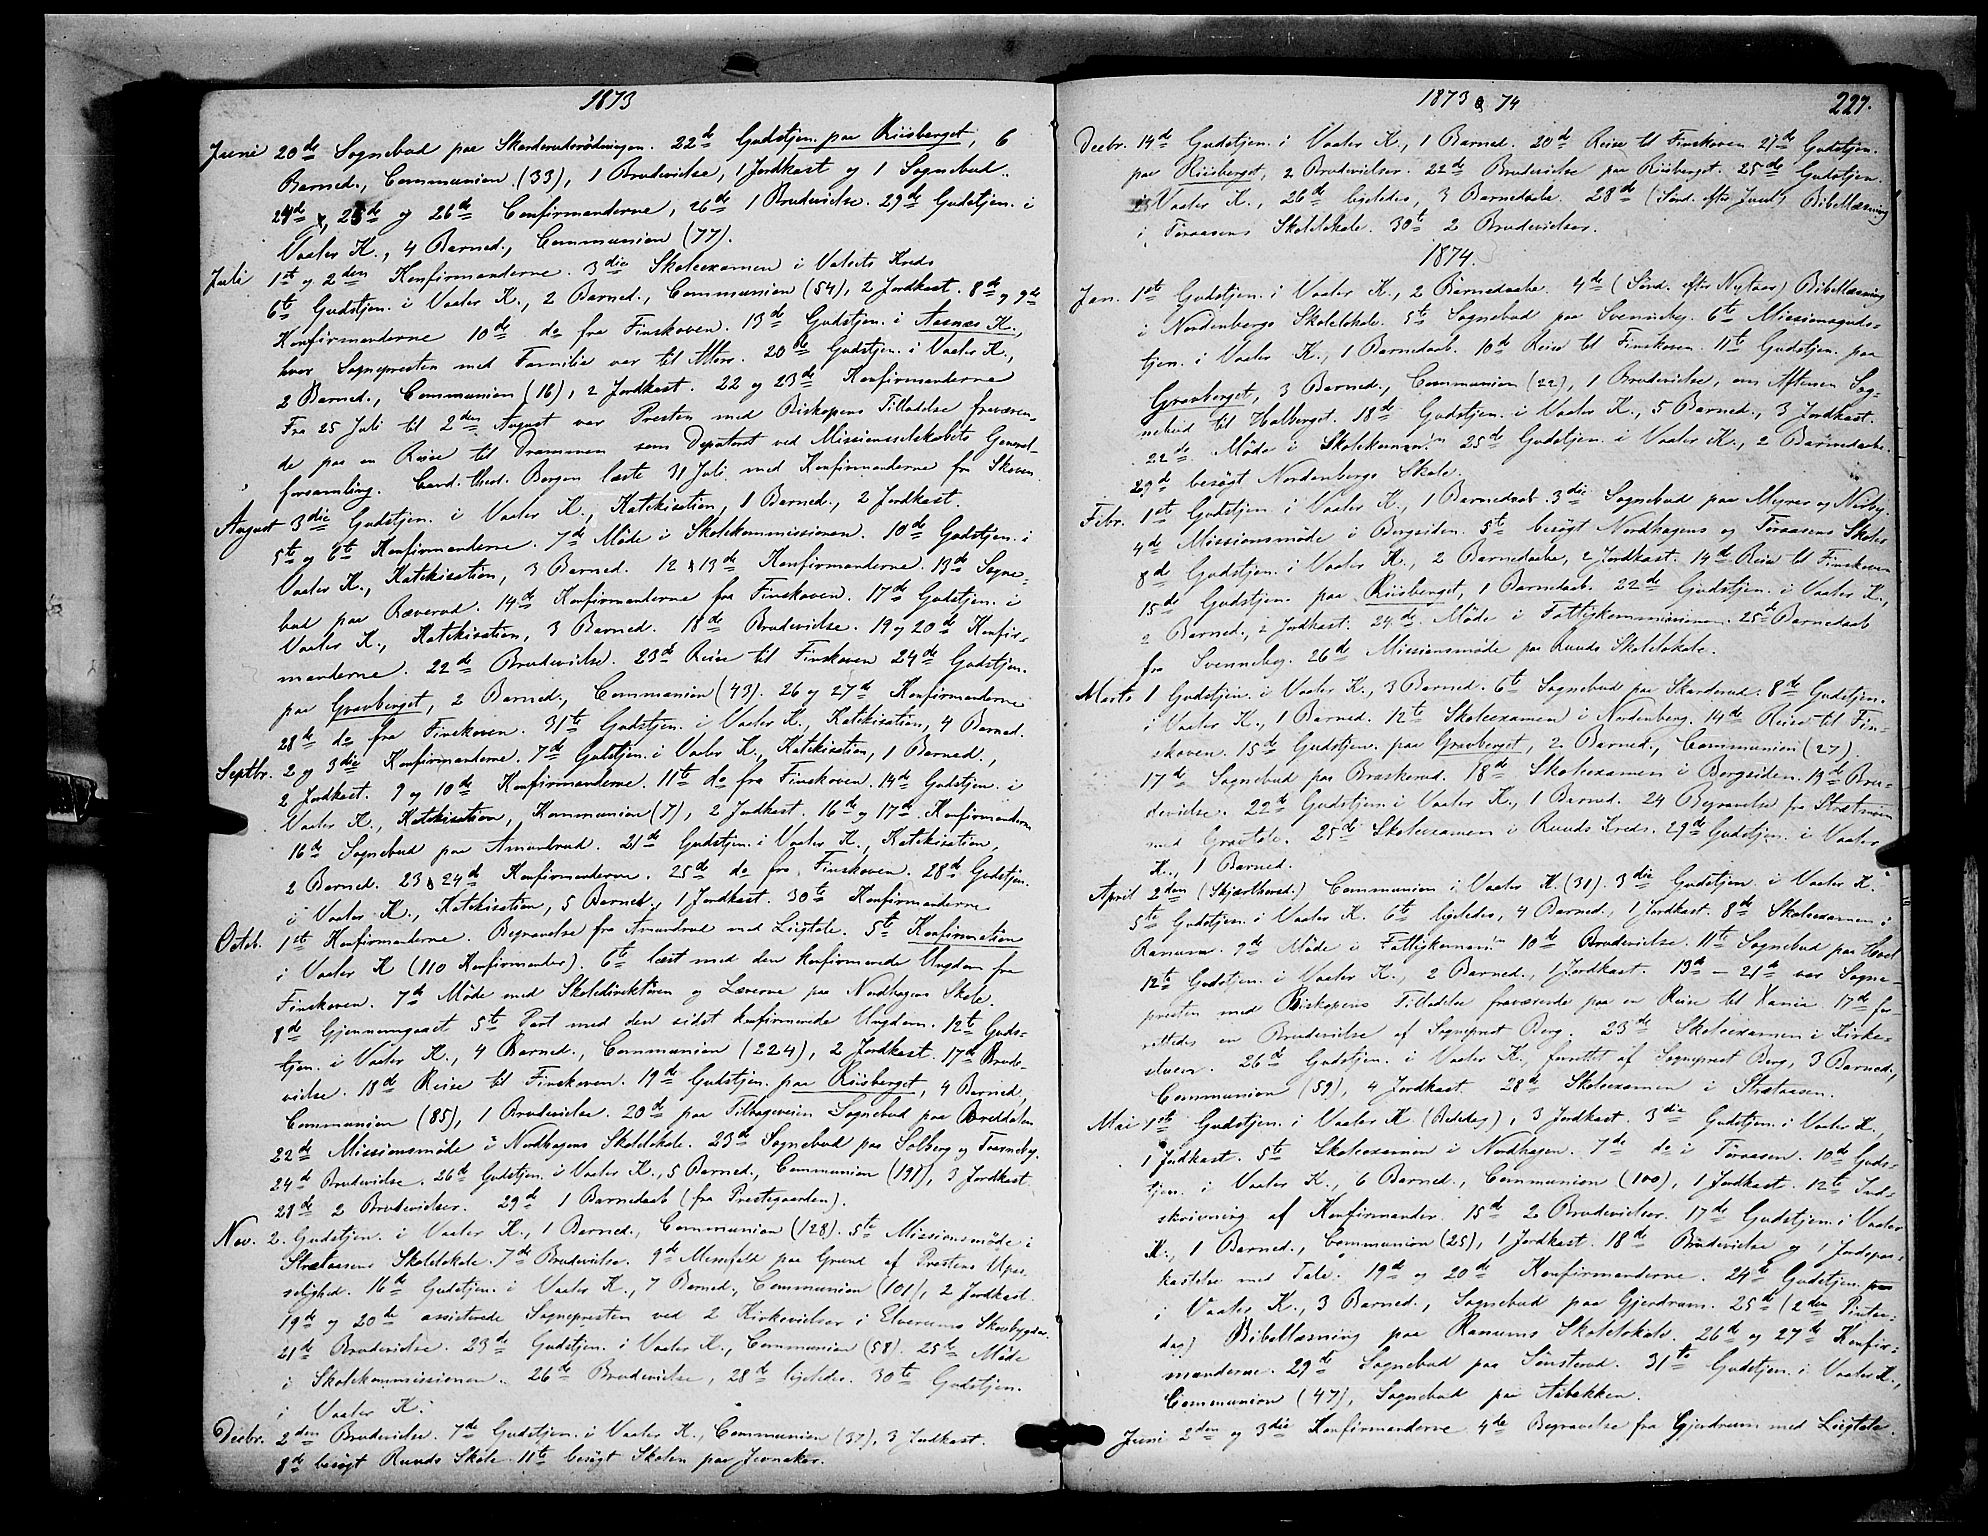 1873
Juni 20de Sognebud paa Skarderudrødningen. 22de Gudstjen. paa Riisberget, 6
Barned., Communion (33), 1 Brudevielse, 1 Jordkast og 1 Sognebud.
24de, 25de og 26de Confirmanderne, 26de 1 Brudevielse. 29de Gudstjen. i
Vaaler K., 4 Barned., Communion (77).
Juli 1ste og 2den Konfirmanderne. 3die Skoleexamen i Kreds
6te Gudstjen. i Vaaler K., 2 Barned., Communion (54), 2 Jordkast. 8de og 9de
Konfirmanderne 10de do fra Finskoven. 13de Gudstjen. i Aasnæs K.,
hvor Sognepresten med Familie var til Alters. 20de Gudstjen. i Vaaler K.,
2 Barned., Communion (16), 2 Jordkast. 22 og 23de Konfirmanderne
Fra 25 Juli til 2den August var Presten med Biskopens Tilladelse fraværen-
de paa en Reise til Drammen som Deputeret ved Missionsselskabets General-
forsamling. Cand. theol. Borgen læste 31 Juli med Konfirmanderne fra Skoven.
August 3die Gudstjen. i Vaaler K., Katekisation, 1 Barned., 2 Jordkast.
5te og 6te Konfirmanderne. 7de Møde i Skolekommissionen. 10de Gudstjen. i
Vaaler K., Katekisation, 3 Barned. 12 & 13de Konfirmanderne. 13de Sogne-
bud paa Ræverud. 14de Konfirmanderne fra Finskoven. 17de Gudstjen. i
Vaaler K., Katekisation, 3 Barned. 18de Brudevielse. 19 og 20de Konfir-
manderne. 22de Brudevielse. 23de Reise til Finskoven 24de Gudstjen.
paa Gravberget, 2 Barned., Communion (43). 26 og 27de Konfirmanderne
28de do fra Finskoven. 31te Gudstjen. i Vaaler K., Katekisation, 4 Barned.
Septbr. 2 og 3die Konfirmanderne. 7de Gudstjen. i Vaaler K., Katekisation, 1 Barned.,
2 Jordkast. 9 og 10de Konfirmanderne. 11te do fra Finskoven. 14de Gudstjen. i
Vaaler K., Katekisation, Kommunion (7), 2 Jordkast. 16de og 17de Konfirmanderne
16de Sognebud paa Amundrud. 21de Gudstjen. i Vaaler K., Katekisation,
2 Barned. 23 & 24de Konfirmanderne. 25de do fra Finskoven. 28de Gudstjen.
i Vaaler K., Katekisation, 5 Barned., 1 Jordkast. 30te Konfirmanderne
Octob. 1ste Konfirmanderne. Begravelse fra Amundrud med Liigtale. 5te Konfirmation
i Vaaler K (110 Konfirmander). 6te læst med den konfirmerede Ungdom fra
Finskoven. 7de Møde med Skoledirektøren og Lærerne paa Nordhagens Skole.
8de Gjennemgaaet 5te Part med den sidst konfirmerede Ungdom. 12te Guds-
tjen. i Vaaler K., 4 Barned., Communion (224), 2 Jordkast. 17de Brude-
vielse. 18de Reise til Finskoven. 19de Gudstjen. paa Riisberget, 4 Barned,
Communion (85), 1 Brudevielse. 20de paa Tilbageveien Sognebud paa Breddalen.
22de Missionsmøde i Nordhagens Skolelokale. 23de Sognebud paa Solberg og
24de Brudevielse. 26de Gudstjen. i Vaaler K., 5 Barned., Communion (191), 3 Jordkast.
28de 2 Brudevielser. 29de 1 Barnedaab (fra Prestegaarden).
Nov. 2. Gudstjen. i Vaaler K., 1 Barned., Communion (128). 5te Missionsmøde i
Strætaasens Skolelokale. 7de Brudevielse. 9de Messefald paa Grund af Prestens Upas-
selighed. 16de Gudstjen. i Vaaler K., 7 Barned., Communion (101), 2 Jordkast.
19de og 20de assisterede Sognepresten ved 2 Kirkevielser i Elverums Skovbygder.
21de Brudevielse. 23de Gudstjen. i Vaaler K., Communion (58). 25de Møde
i Skolekommissionen. 26de Brudevielse, 28de ligeledes. 30te Gudstjen.
i Vaaler K.
Decbr. 2den Brudevielse. 7de Gudstjen. i Vaaler K., Communion (37), 3 Jordkast.
8de besøgt Ruuds Skole. 11te besøgt Skolen paa Jernaker.
1873 & 74
227.
Decbr. 14de Gudstjen. i Vaaler K., 1 Barned. 20de Reise til Finskoven 21de Gudstjen.
paa Riisberget, 2 Brudevielser. 22de Brudevielse paa Riisberget. 25de Gudstjen.
i Vaaler K., 26de ligeledes, 3 Barnedaabe. 28de (Sønd. efter Juul) Bibellæsning
i Toraasens Skolelokale. 30te 2 Brudevielser.
1874.
Jan. 1ste Gudstjen. i Vaaler K., 2 Barnedaabe. 4de (Sønd. efter Nytaar) Bibellæsning
i Nordenbergs Skolelokale. 5te Sognebud paa Svenneby. 6te Missionsguds-
tjen. i Vaaler K., 1 Barnedaab. 10de Reise til Finskoven. 11te Gudstjen. paa
Gravberget, 3 Barned., Communion (22), 1 Brudevielse, om Aftenen Sog-
nebud til Halberget. 18de Gudstjen. i Vaaler K., 5 Barned., 3 Jordkast.
22de Møde i Skolekomm. 25de Gudstjen. i Vaaler K., 2 Barnedaabe.
29de besøgt Nordenbergs Skole.
Febr. 1ste Gudstjen. i Vaaler K., 1 Barnedaab. 3die Sognebud paa Myrer og Nerby.
4de Missionsmøde i Bergsiden. 5te besøgt Nordhagens og Toraasens Skoler
8de Gudstjen. i Vaaler K., 2 Barnedaabe, 2 Jordkast. 14de Reise til Finskoven
15de Gudstjen. paa Riisberget, 1 Barnedaab. 22de Gudstjen. i Vaaler K.,
2 Barned., 2 Jordkast. 24de Møde i Fattigkommissionen. 25de Barnedaab
fra Svenneby. 26de Missionsmøde paa Ruuds Skolelokale.
Marts 1 Gudstjen. i Vaaler K., 3 Barned. 6te Sognebud paa Skarderud. 8de Gudstjen.
i Vaaler K., 1 Barned. 12te Skoleexamen i Nordenberg. 14de Reise til Fin-
skoven. 15de Gudstjen. paa Gravberget, 2 Barned., Communion (27).
17de Sognebud paa Braskerud. 18de Skoleexamen i Bergsiden. 19de Bru-
devielse. 22de Gudstjen. i Vaaler K., 1 Barned. 24 Begravelse fra
med Gravtale. 25de Skoleexamen i Ruuds Kreds. 29de Gudstjen. i Vaaler
K., 1 Barned.
April 2den (Skjærthorsd.) Communion i Vaaler K. (31). 3die Gudstjen. i Vaaler K.
5te Gudstjen. i Vaaler K. 6te ligeledes, 4 Barned., 1 Jordkast. 8de Skoleexamen i
Ranum. 9de Møde i Fattigkomm. 10de Brudevielse. 11te Sognebud paa Hoel
12te Gudstjen. i Vaaler K., 2 Barned., 1 Jordkast. 13de – 21de var Sogne-
presten med Biskopens Tilladelse fraværende paa en Reise til Xania. 17de for-
rettedes en Brudevielse af Sogneprest Berg. 23de Skoleexamen i Kirke-
skolen. 26de Gudstjen. i Vaaler K., forrettet af Sogneprest Berg, 3 Barned.,
Communion (59), 4 Jordkast. 28de Skoleexamen i Strætaasen.
Mai 1ste Gudstjen. i Vaaler K. (Bededag), 3 Jordkast. 3die Gudstjen. i Vaaler K.,
1 Jordkast. 5te Skoleexamen i Nordhagen. 7de do i Toraasen. 10de Guds-
tjen. i Vaaler K., 6 Barned., Communion (100), 1 Jordkast. 12te Ind-
skrivning af Konfirmander. 15de 2 Brudevielser. 17de Gudstjen. i Vaaler
K., 1 Barned., Communion (25), 1 Jordkast. 18de Brudevielse og 1 Jordspaa-
kastelse med Tale. 19de og 20de Konfirmanderne. 24de Gudstjen.
i Vaaler K., 3 Barned., Sognebud paa Gjerdrum. 25de (2den Pintse-
dag) Bibellæsning paa Ranums Skolelokale. 26de og 27de Konfir-
manderne. 29de Sognebud paa Sønsterud. 31te Gudstjen. i Vaaler K.,
Communion (47), Sognebud paa Aabakken.
Juni 2den og 3die Konfirmanderne 4de Begravelse fra Gjerdrum med Liigtale.